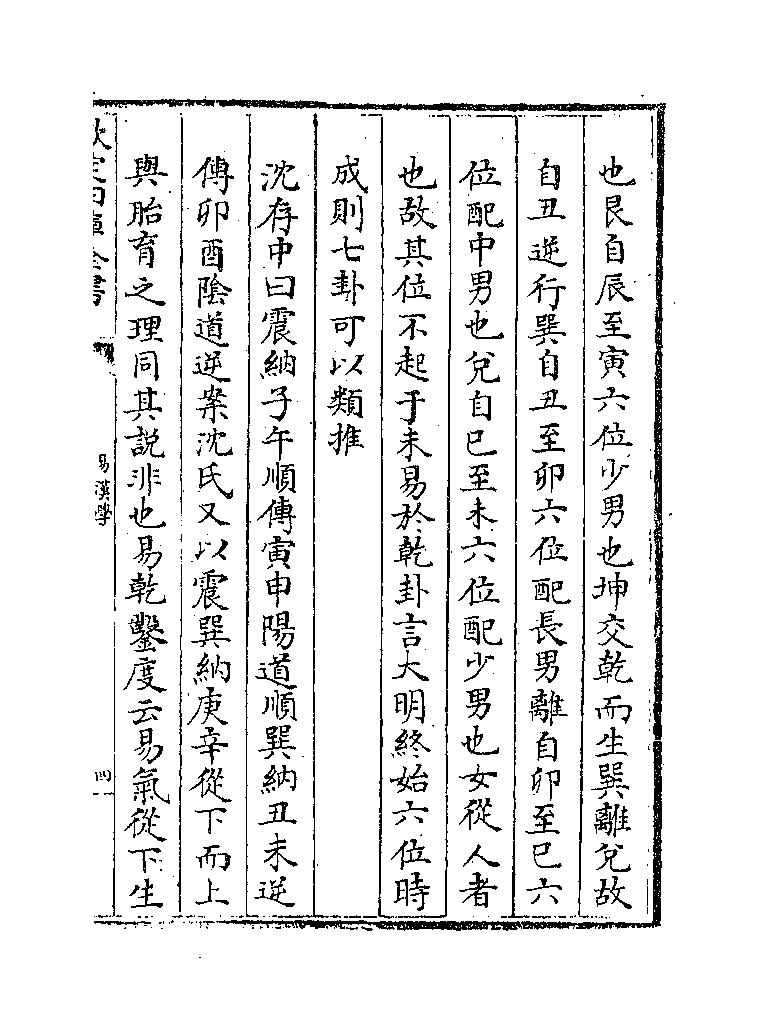 也艮自辰至寅六位少男也坤交乾而生巽離兌故
自丑逆行巽自丑至卯六位配長男離自卯至巳六
位配中男也兌自巳至未六位配少男也女從人者
也故其位不起于未易於乾卦言大明終始六位時
成則七卦可以類推
沈存中曰震納子午順傳寅申陽道順巽納丑未逆
傳卯酉陰道逆案沈氏又以震巽納庚辛從下而上
與胎育之理同其説非也易乾鑿度云易氣從下生
欽定四庫全書
易漢學
四